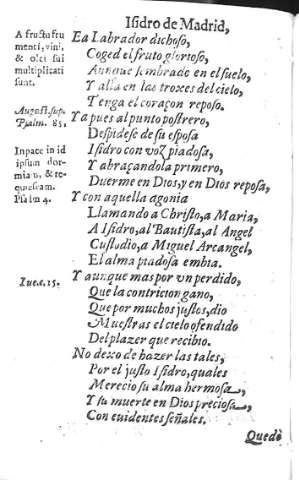 Isidro de Madrid,
A fructu fru
menti, vini,
& olei sui
multiplicati
sunt.
August. sup.
Psalm. 85.
In pace in id
ipsum dor-
miam, & re-
quiescam.
Psalm 4.
Luc. c. 15.
Ea Labrador dichoso,
Coged el fruto glorioso,
Aunque sembrado en el suelo,
Y alla en las troxes del cielo,
Tenga el coraçon reposo.
Ya pues al punto postrero,
Despidese de su esposa
Isidro con voz piadosa,
Y abraçandola primero,
Duerme en Dios, y en Dios reposa,
Y con aquella agonia
Llamando a Christo, a Maria,
A Isidro, al Bautista, al Angel
Custudio, a Miguel Arcangel,
El alma piadosa embia.
Y aunque mas por un perdido,
Que la contricion gano,
Que por muchos justos, dio
Muestras el cielo ofendido
Del plazer que recibio.
No dexo de hazer las tales,
Por el justo Isidro, quales
Merecio su alma hermosa,
Y su muerte en Dios preciosa,
Con euidentes señales.
Quedò